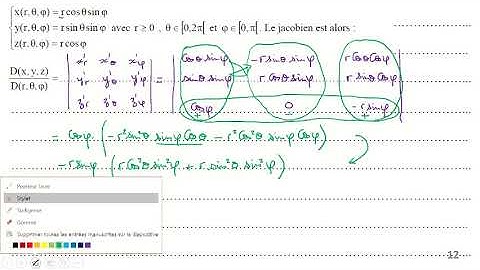 x(r, θ, φ) = r cos θ sin φ
y(r, θ, φ) = r sin θ sin φ avec r ≥ 0 , θ ∈ [0,2π[ et φ ∈ [0, π[. Le jacobien est alors :
z(r, θ, φ) = r cos φ
D(x, y, z) / D(r, θ, φ) = | x'r x'θ x'φ | = | cosθ sinφ -r sinθ sinφ r cosθ cosφ |
| y'r y'θ y'φ | | sinθ sinφ r cosθ sinφ r sinθ cosφ |
| z'r z'θ z'φ | | cosφ 0 -r sinφ |
+ - +
= cosφ (-r² sin²θ sinφ cosφ - r² cos²θ sinφ cosφ)
- r sinφ (r cos²θ sin²φ + r sin²θ sin²φ)
Pointeur laser
Stylet
Surligneur
Gomme
Supprimer toutes les entrées manuscrites sur la diapositive
12